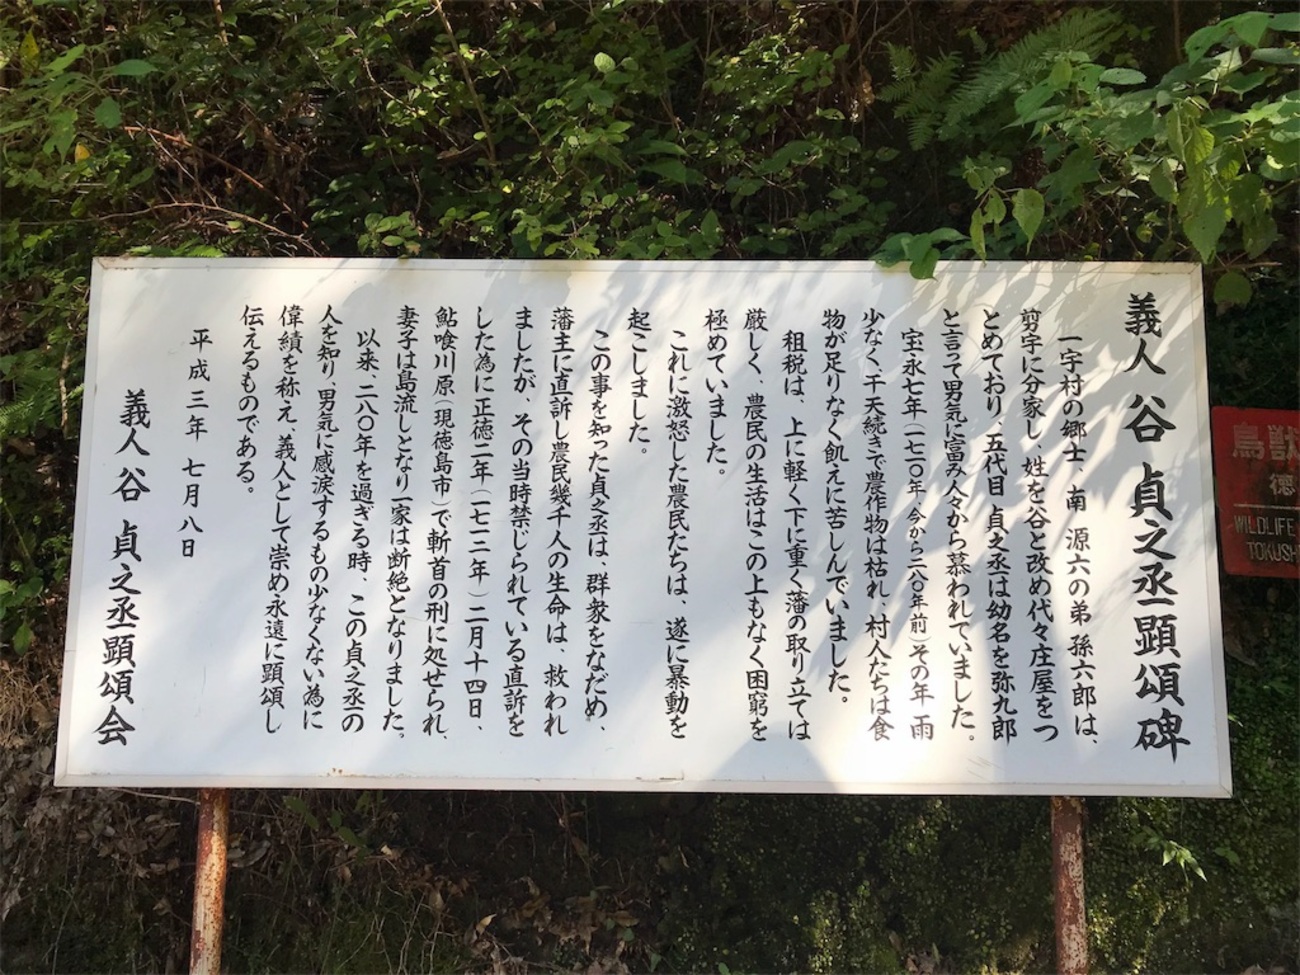 義人 谷 貞之丞顕頌碑
一宇村の郷士、南 源六の弟 孫六郎は、
剪宇に分家し、姓を谷と改め代々庄屋をつ
とめており、五代目 貞之丞は幼名を弥九郎
と言って男気に富み人々から慕われていました。
宝永七年(一七一〇年、今から二八〇年前)その年 雨
少なく、干天続きで農作物は枯れ、村人たちは食
物が足りなく飢えに苦しんでいました。
租税は、上に軽く下に重く藩の取り立ては
厳しく、農民の生活はこの上もなく困窮を
極めていました。
これに激怒した農民たちは、遂に暴動を
起こしました。
この事を知った貞之丞は、群衆をなだめ、
藩主に直訴し農民幾千人の生命は、救われ
ましたが、その当時禁じられている直訴を
した為に正徳二年(一七一二年)二月十四日、
鮎喰川原(現徳島市)で斬首の刑に処せられ、
妻子は島流しとなり一家は断絶となりました。
以来、二八〇年を過ぎる時、この貞之丞の
人を知り、男気に感涙するもの少なくない為に
偉績を称え、義人として崇め永遠に顕頌し
伝えるものである。
平成三年 七月八日
義人 谷 貞之丞顕頌会
鳥獣
徳
WILDLIFE
TOKUSH